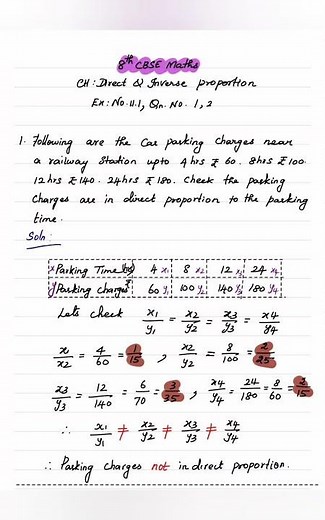 8th CBSE Maths
CH: Direct & Inverse proportion
Ex: No. 11.1, Qn. No. 1, 2
1. Following are the car parking charges near
a railway station upto 4 hrs ₹ 60. 8hrs ₹ 100.
12 hrs ₹ 140. 24 hrs ₹ 180. Check the parking
charges are in direct proportion to the parking
time.
Soln:
x Parking Time (hrs) 4 x1 8 x2 12 x3 24 x4
y Parking charges ₹ 60 y1 100 y2 140 y3 180 y4
Lets check x1/y1 = x2/y2 = x3/y3 = x4/y4
x/x2 = 4/60 = 1/15 , x2/y2 = 8/100 = 2/25
x3/y3 = 12/140 = 6/70 = 3/35 , x4/y4 = 24/180 = 8/60 = 2/15
∴ x1/y1 ≠ x2/y2 ≠ x3/y3 ≠ x4/y4
∴ Parking charges not in direct proportion.